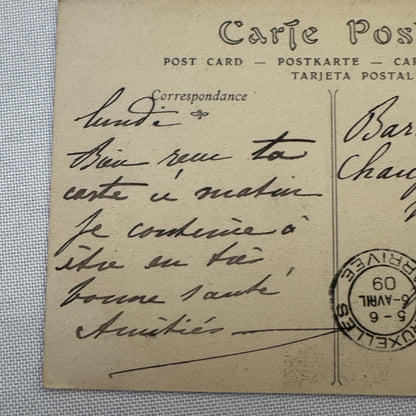 Carte Pos
POST CARD — POSTKARTE — CAR
TARJETA POSTAL
Correspondance
lundi
Bien reçu ta
carte ce matin
Je continue à
être en très
bonne santé
Amitiés
Bar
Chau
BRUXELLES
ARRIVÉE
5-6
6-AVRIL
09